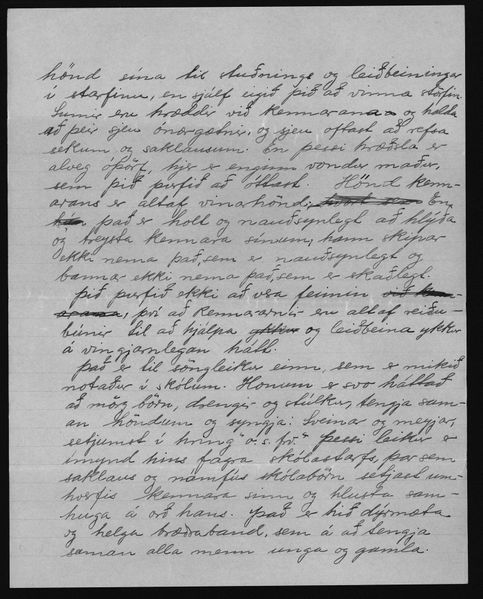 hönd sína til stuðnings og leiðbeiningar
í starfinu, en sjálf eigið þið að vinna störfin.
Sumir eru hræddir við kennarana og halda
að þeir sjeu ónærgætnir, og sjeu oftast að refsa
sekum og saklausum. En þessi hræðsla er
alveg óþörf, hjer er enginn vondur maður,
sem þið þurfið að óttast. Hönd kenn-
arans er altaf vinarhönd, En
það er holt og nauðsynlegt að hlýða
og treysta kennara sínum, hann skipar
ekki nema það, sem er nauðsynlegt og
bannar ekki nema það, sem er skaðlegt.
Þið þurfið ekki að vera feimin við kenn-
arana, því að kennararnir eru altaf reiðu-
búnir til að hjálpa og leiðbeina ykkur
á vingjarnlegan hátt.
Það er til söngleikur einn, sem er mikið
notaður í skólum. Honum er svo háttað
að mörg börn, drengir og stúlkur, tengja sam-
an höndum og syngja: Sveinar og meyjar,
setjumst í hring" o. s. frv." Þessi leikur er
ímynd hins fagra skólastarfs, þar sem
saklaus og námfús skólabörn setjast um-
hverfis kennara sinn og hlusta sam-
huga á orð hans. Það er hið dýrmæta
og helga bræðraband, sem á að tengja
saman alla menn unga og gamla.